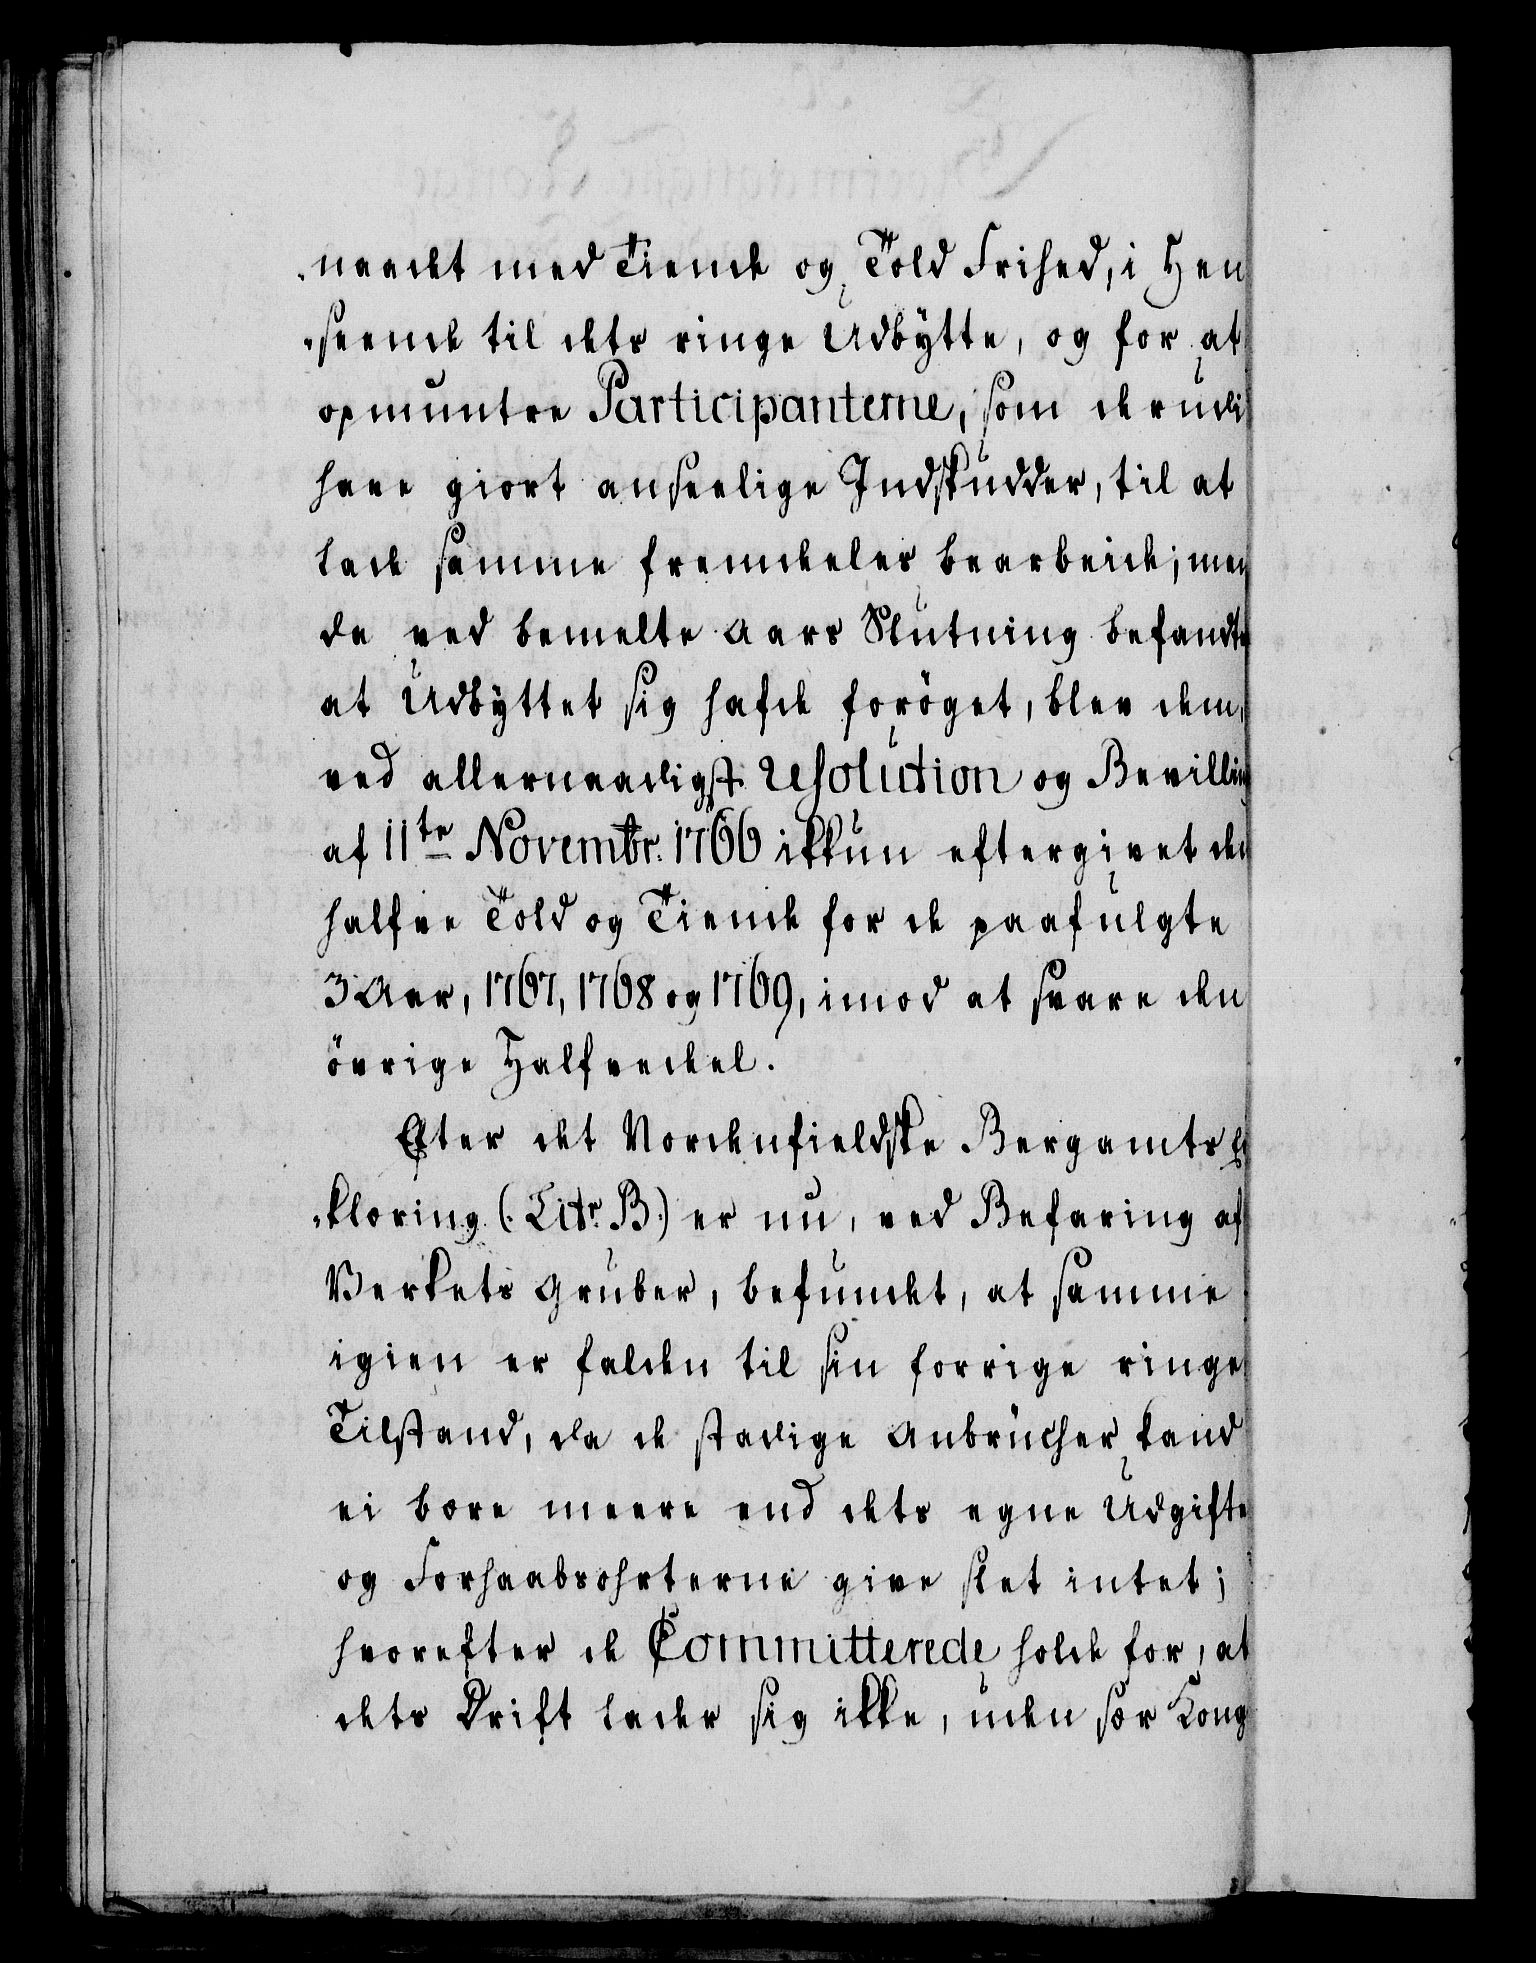 naadet med Tiende og Told Frihed, i Hen
seende til dets ringe Udbytte, og for at
opmuntre Participanterne, som derudi
have giort anseelige Indskudder, til at
lade samme fremdeeles bearbeide; men
da ved bemelte Aars Slutning befandtes
at Udbyttet sig hafde forøget, blev dem,
ved allernaadigst Resolution og Bevilling
af 11te Novembr. 1766 ikkun eftergivet den
halfve Told og Tiende for de paafulgte
3 Aar, 1767, 1768 og 1769, imod at svare den
øvrige Halfvedeel.
Efter det Nordenfieldske Bergamts Er
klæring (: Litr. B:) er nu, ved Befaring af
Verkets Gruber, befundet, at samme
igien er falden til sin forrige ringe
Tilstand, da de stadige Anbrücher kand
ei bære meere end dets egne Udgifter
og Forhaabsohrterne give slet intet;
hvorefter de Committerede holde for, at
dets Drift lader sig ikke, uden sær Kong